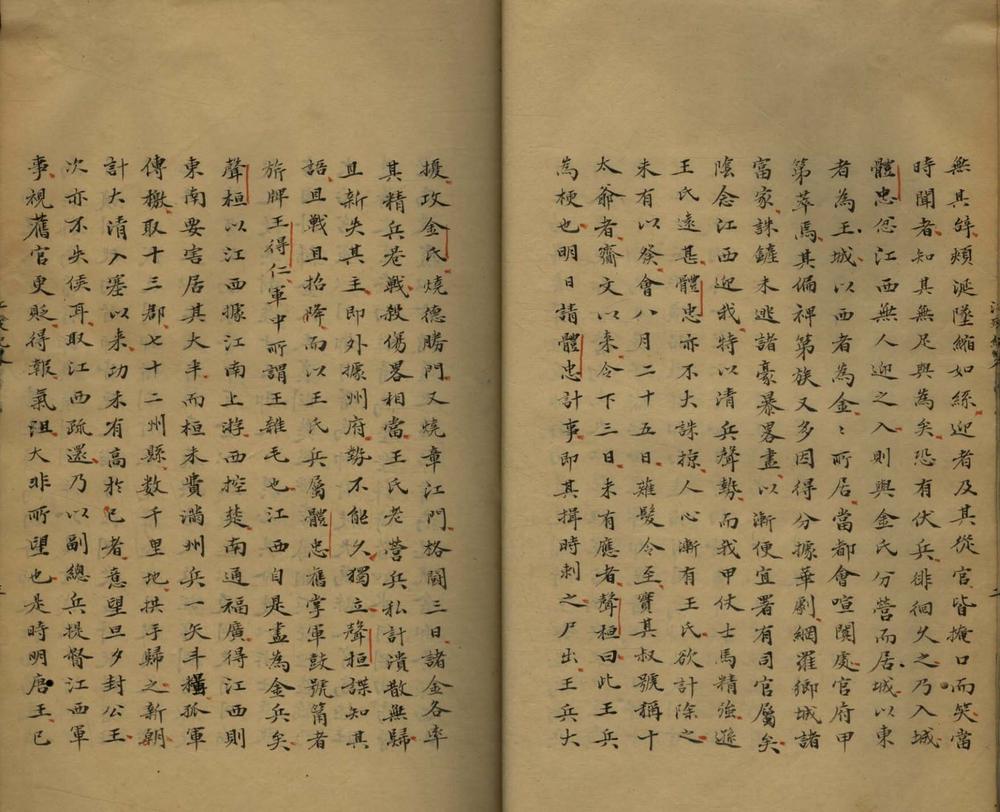 無其辝頰涎墜縮如絲迎者及其從官皆掩口而笑當
時聞者知其無足與為矣恐有伏兵徘徊久之乃入城
體忠忿江西無人迎之入則與金氏分營而居城以東
者為王城以西者為金〻所居當都會喧闐處官府甲
第萃焉其偏裨第族又多因得分據華劇網羅鄉城諸
富家誅鏟未逃諸豪暴畧盡以漸便宜署有司官屬矣
陰念江西迎我特以清兵聲勢而我甲仗士馬精強遜
王氏遠甚體忠亦不大誅掠人心漸有王氏欲計除之
未有以發會八月二十五日薙髮令至實其叔號稱十
太爺者齎文以來令下三日未有應者聲桓曰此王兵
為梗也明日請體忠計事即其揖時刺之尸出王兵大
擾攻金氏燒德勝門又燒章江門格鬪三日諸金各率
其精兵巷戰殺傷畧相當王氏老營兵私計潰散無歸
且新失其主即外據州府勢不能久獨立聲桓諜知其
語且戰且招降而以王氏兵屬體忠舊掌軍鼓號筩者
旂牌王得仁軍中所謂王雜毛也江西自是盡為金兵矣
聲桓以江西據江南上游西控楚南通福廣得江西則
東南要害居其大半而桓未費滿州兵一矢斗糧孤軍
傳檄取十三郡七十二州縣數千里地拱手歸之新朝
計大清入塞以來功未有高於已者意望旦夕封公王
次亦不失侯耳取江西疏還乃以副總兵提督江西軍
事視舊官更貶得報氣沮大非所望也是時明唐王已